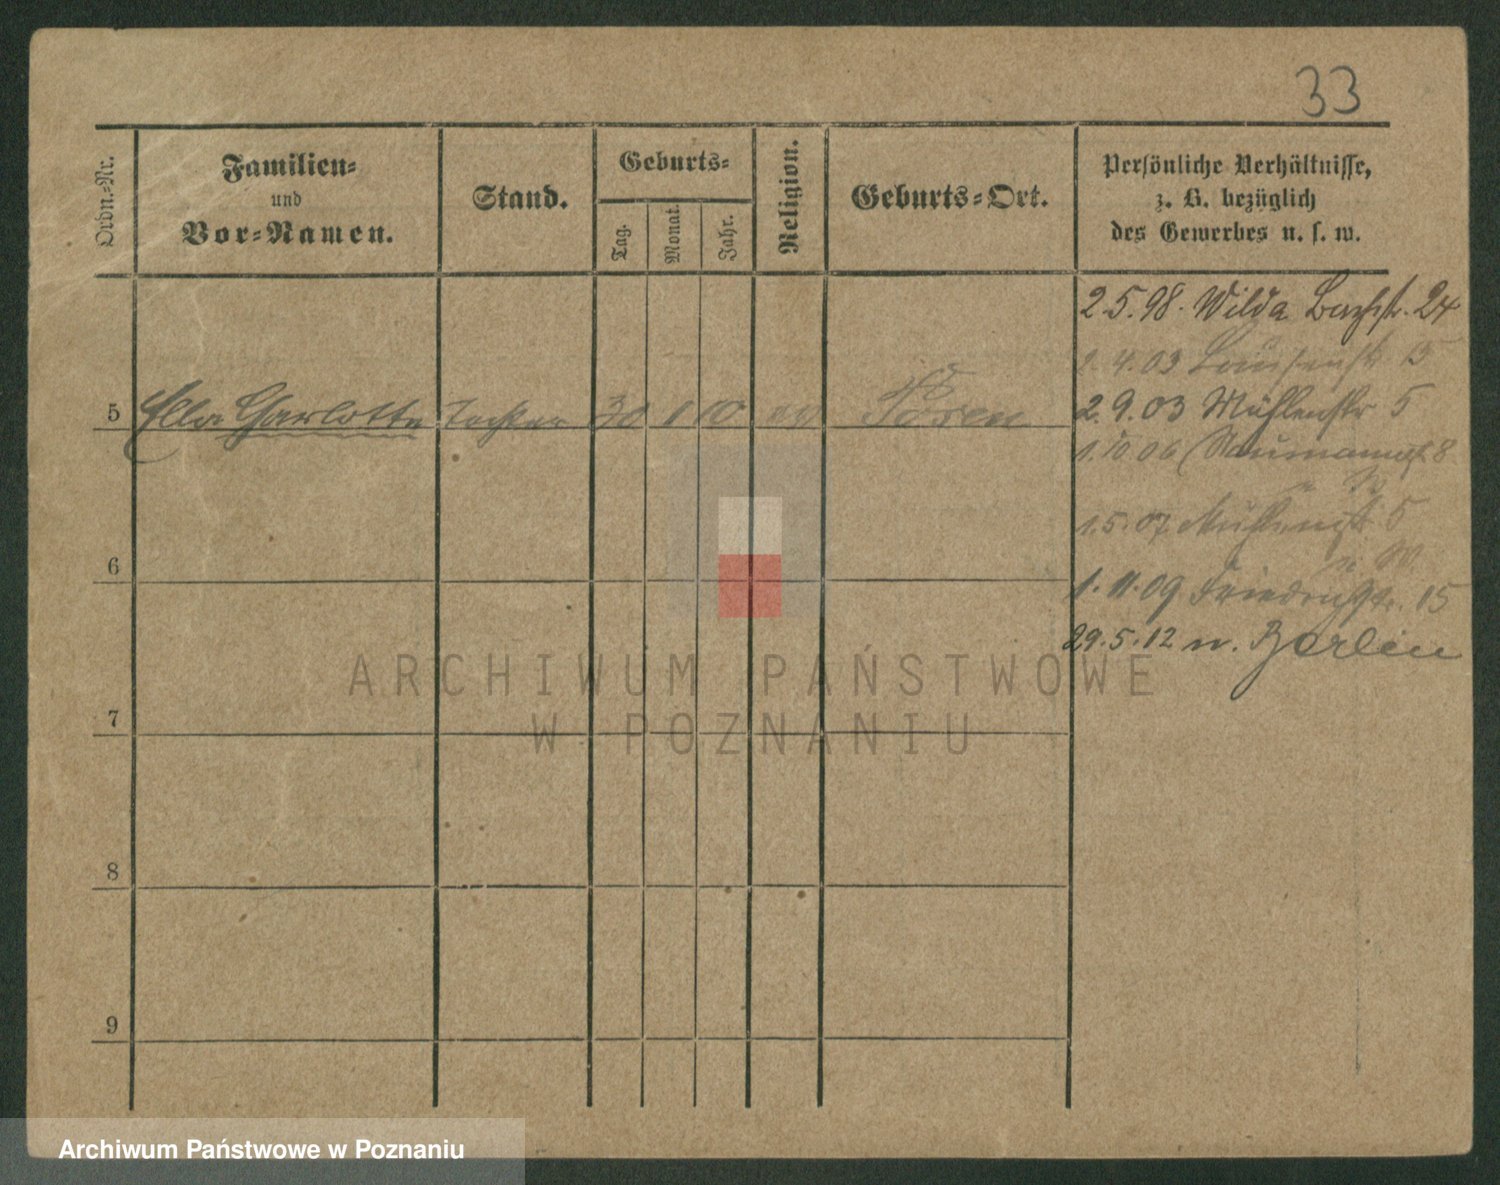 33
Ordn.-Nr.
Familien-
und
Vor-Namen.
Stand.
Geburts-
Tag.
Monat.
Jahr.
Religion.
Geburts-Ort.
Persönliche Verhältnisse,
z. B. bezüglich
des Gewerbes u. s. w.
2.5.98. Wilda Bachstr. 24
4.03 5
5 Ella Charlotte Tochter 30 10 Posen
2.9.03 Mühlenstr 5
1.10.06 Naumannstr 8
1.5.07 Mühlenstr 5
6
1.11.09 Friedrichstr. 15
29.5.12 n. Berlin
7
8
9
ARCHIWUM PAŃSTWOWE
W POZNANIU
Archiwum Państwowe w Poznaniu